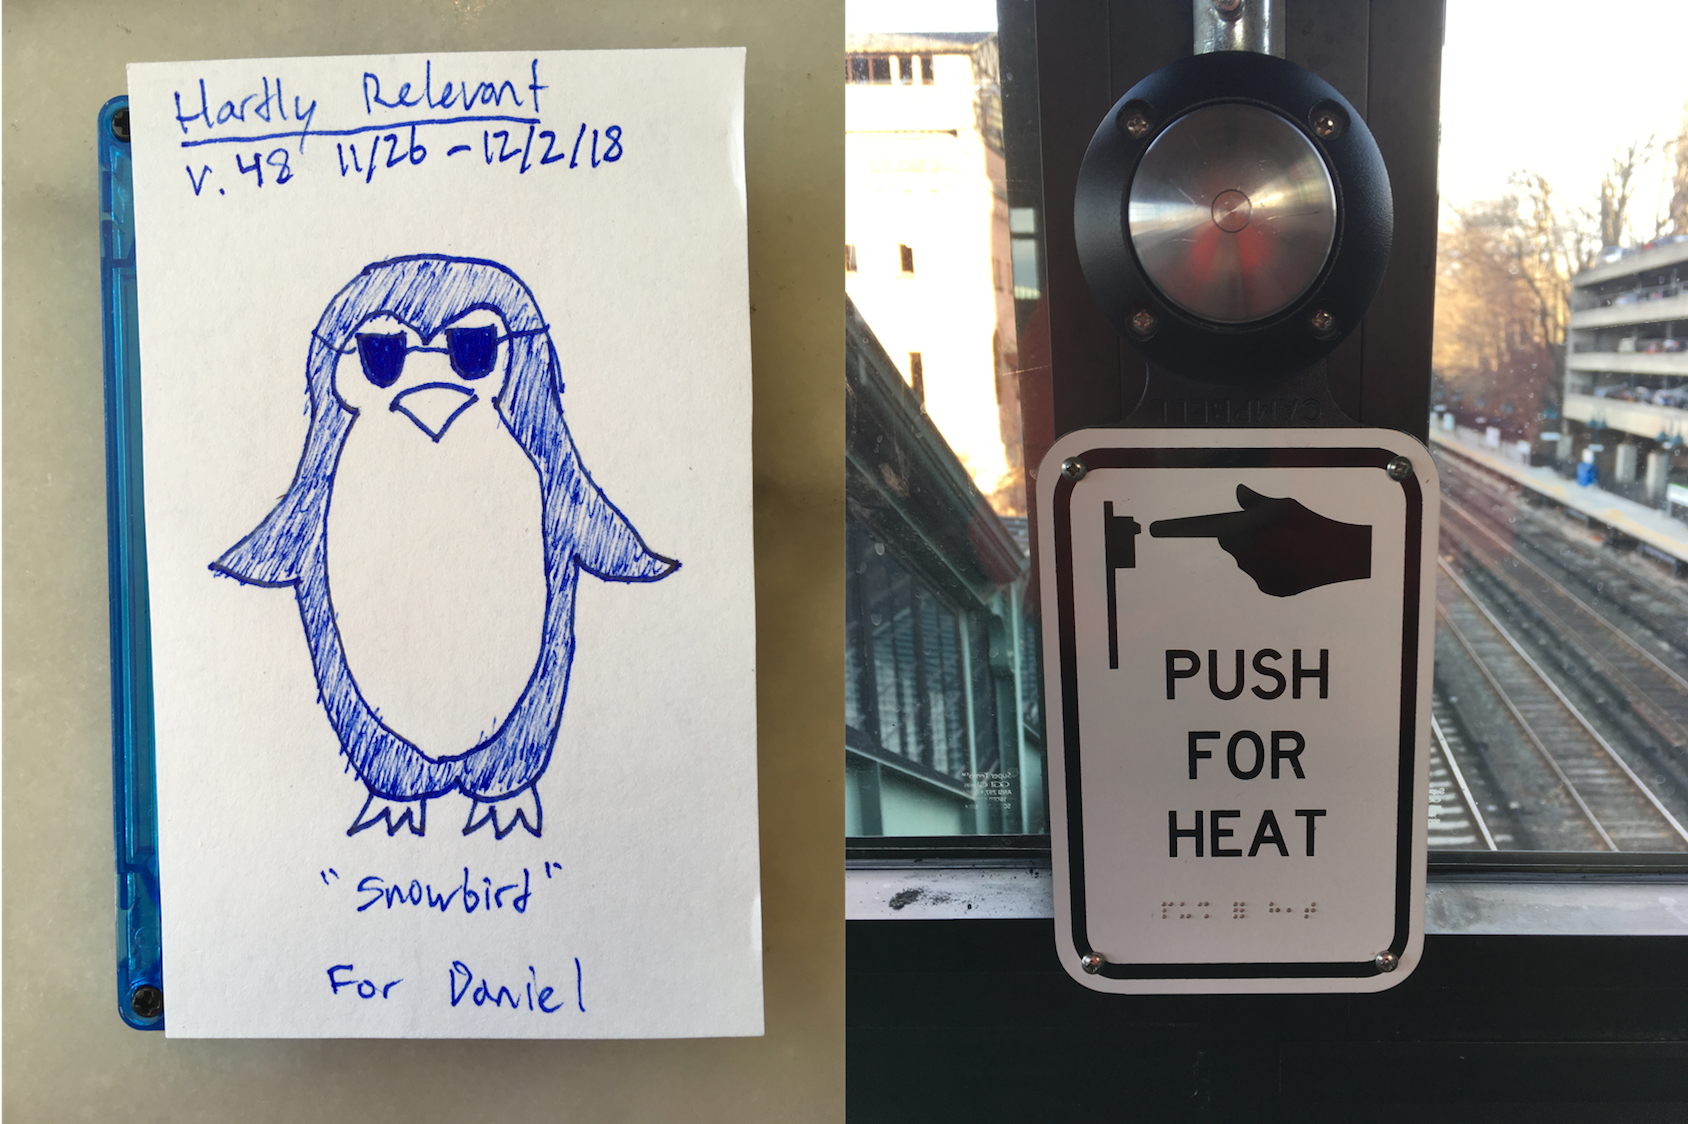 Hartly Relevant
v. 48 11/26 - 12/2/18
"Snowbird"
For Daniel
CAMPBELL
PUSH
FOR
HEAT